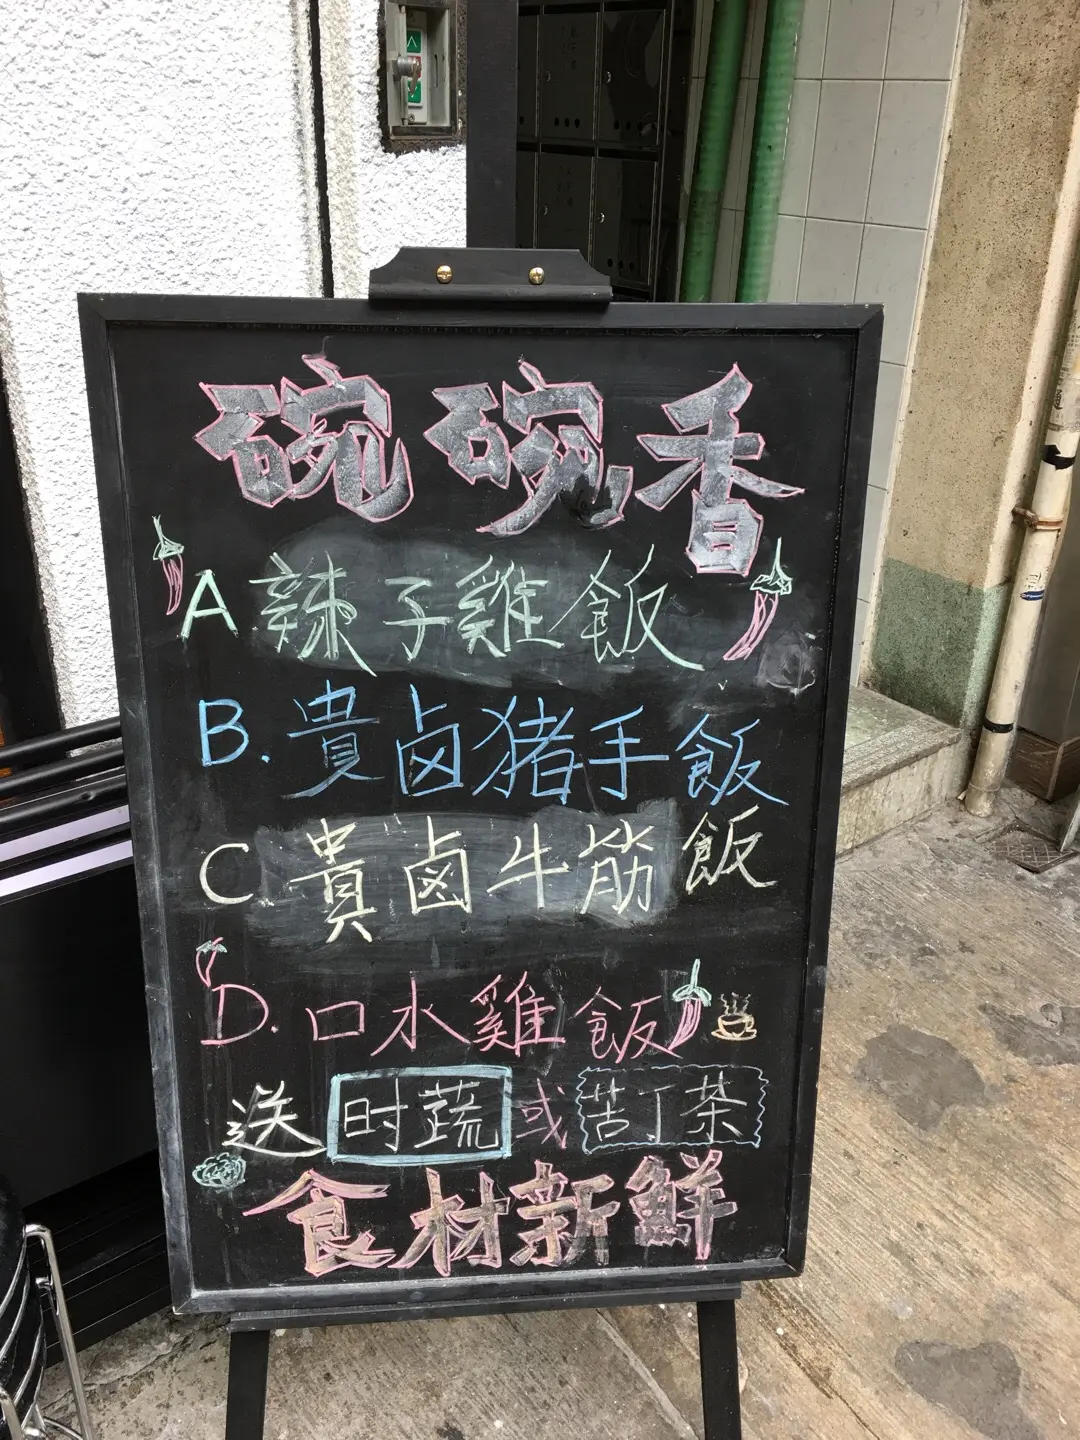 碗碗香
A 辣子雞飯
B. 貴卤猪手飯
C. 貴卤牛筋飯
D. 口水雞飯
送 时蔬 或 苦丁茶
食材新鮮